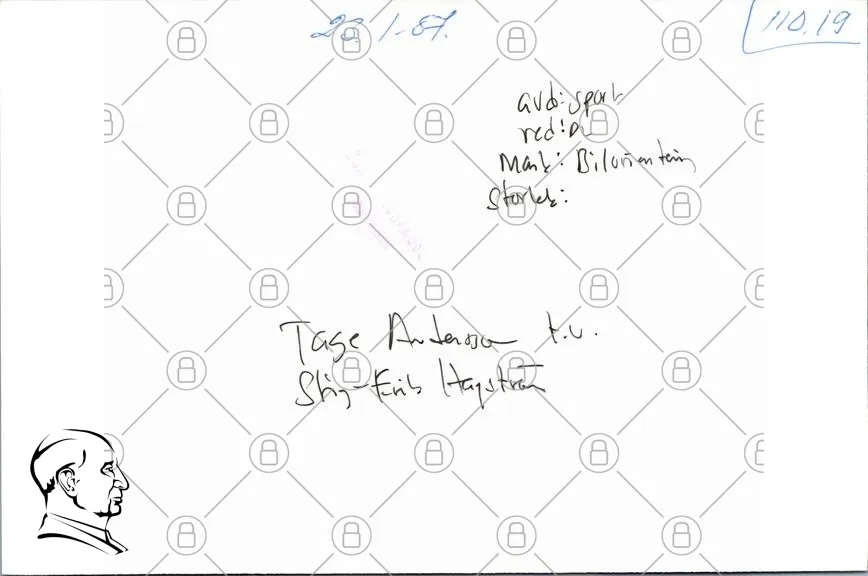 110.19
26.1-87.
avd: sport
red: 
Mark: Bilorientering
Storlek:
Tage Andersson t.v.
Stig-Erik Hagström